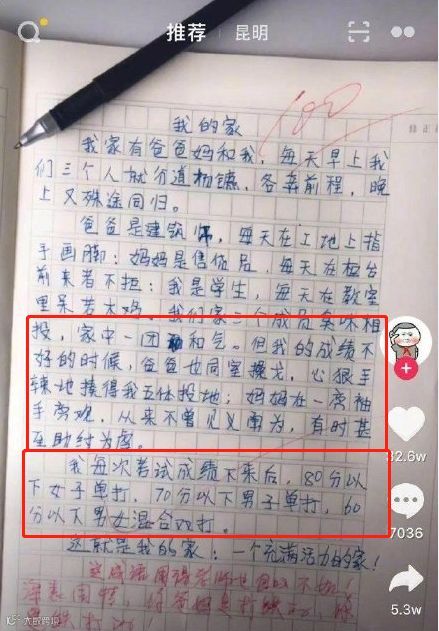 推荐 昆明
100
我的家
我家有爸爸妈和我，每天早上我
们三个人就分道扬镳，各奔前程，晚
上又殊途同归。
爸爸是建筑师，每天在工地上指
手画脚；妈妈是售货员，每天在柜台
前来者不拒；我是学生，每天在教室
里呆若木鸡。我们家三个成员臭味相
投，家中一团和气。但我的成绩不
好的时候，爸爸也同室操戈，心狠手
辣地揍得我五体投地；妈妈在一旁袖
手旁观，从来不曾见义勇为，有时甚
至助纣为虐。
我每次考试成绩下来后，80分以
下女子单打，70分以下男子单打，60
分以下男女混合双打。
这就是我的家：一个充满活力的家！
32.6w
7036
5.3w
大数跨境